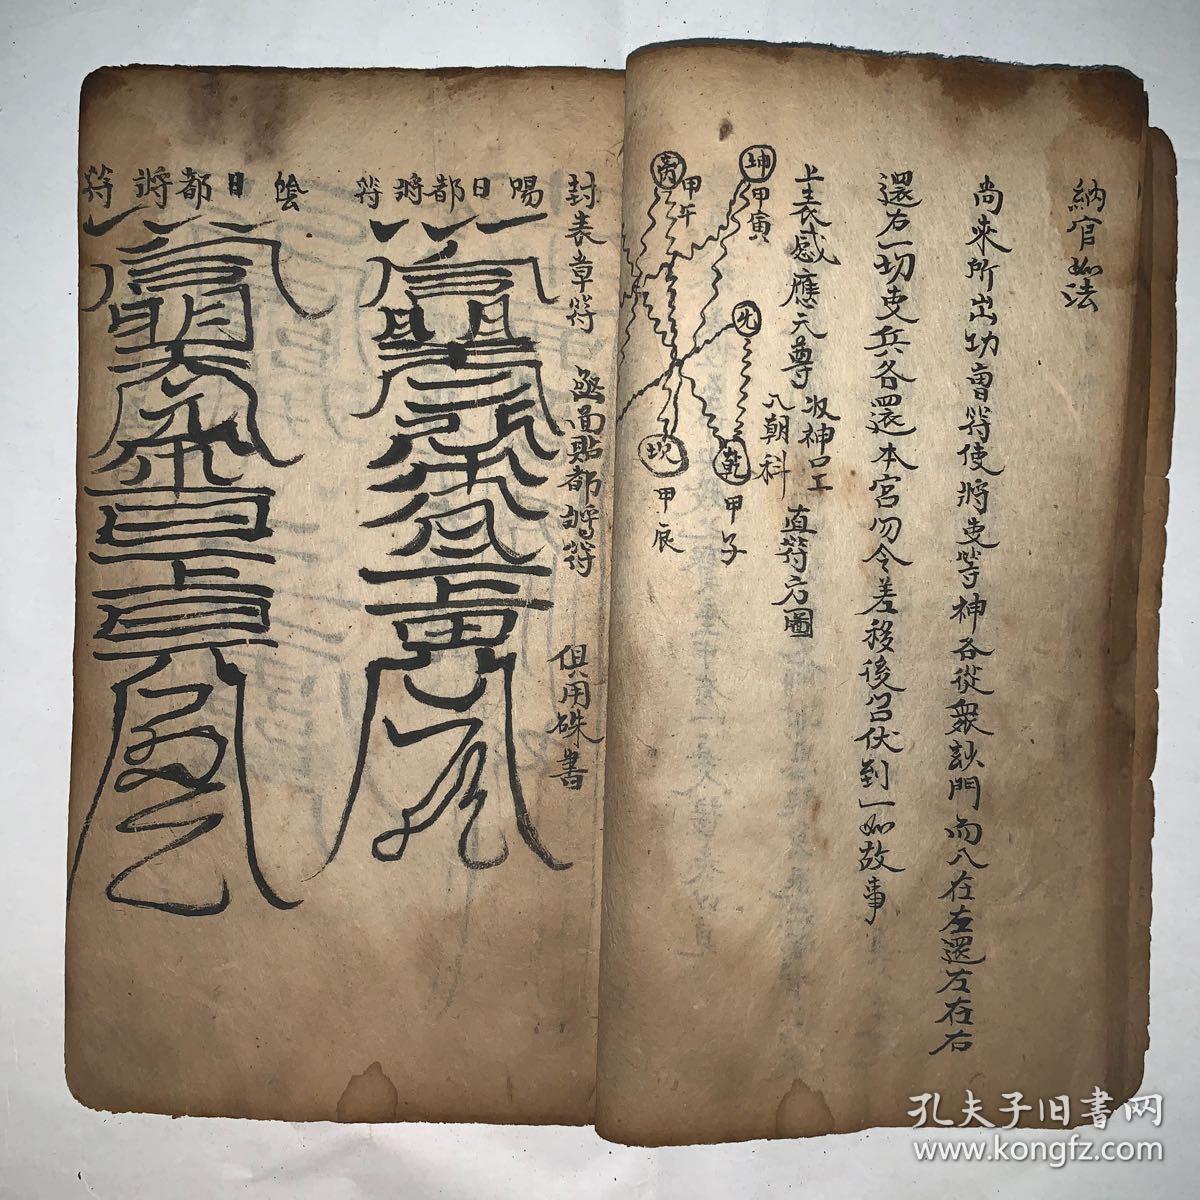 納官如法
尚來所出功曹符使將吏等神各從衆妙門而入在左還左在右
還右一切吏兵各囬還本宮勿令差移後召伏到一如故事
上表感應天尊
收神口工
入朝科
直符方圖
坤
甲寅
离
甲午
兊
乾
甲子
坎
甲辰
封表章符
凾面貼都將符
俱用硃書
陽日都將符
陰日都將符
孔夫子旧書网
www.kongfz.com